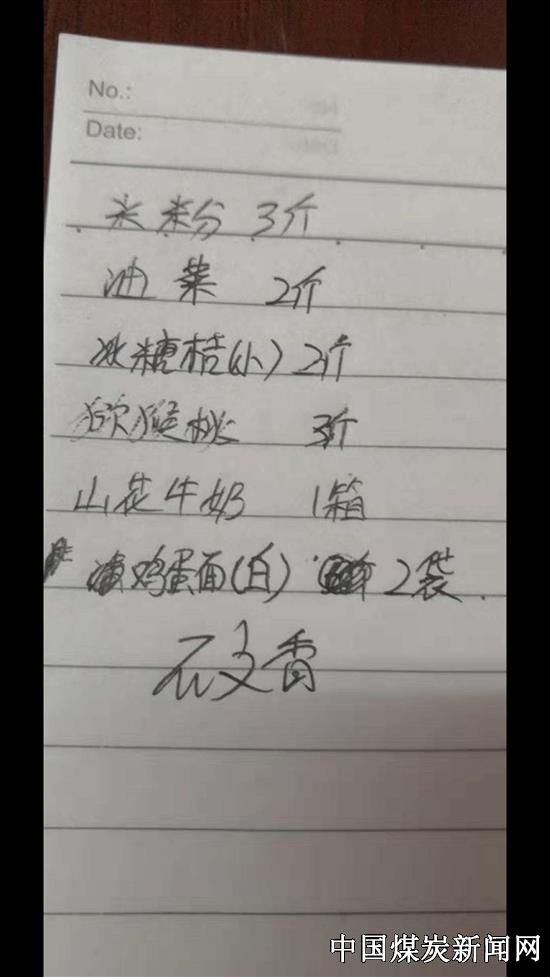 No.:
Date:
米粉 3斤
油菜 2斤
冰糖桔(小) 2斤
猕猴桃 3斤
山花牛奶 1箱
鸡蛋面(白) 2袋
石文香
中国煤炭新闻网